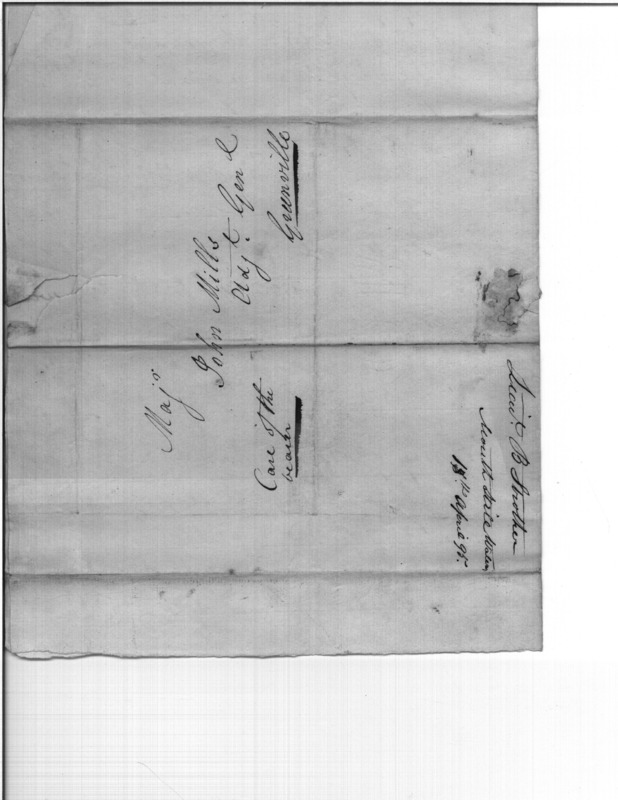 Majr
John Mills
Adjt. Genl
Greenville
Care of the
bearer
Lieut. B Strother
Mouth Stile Water
18th April 95.